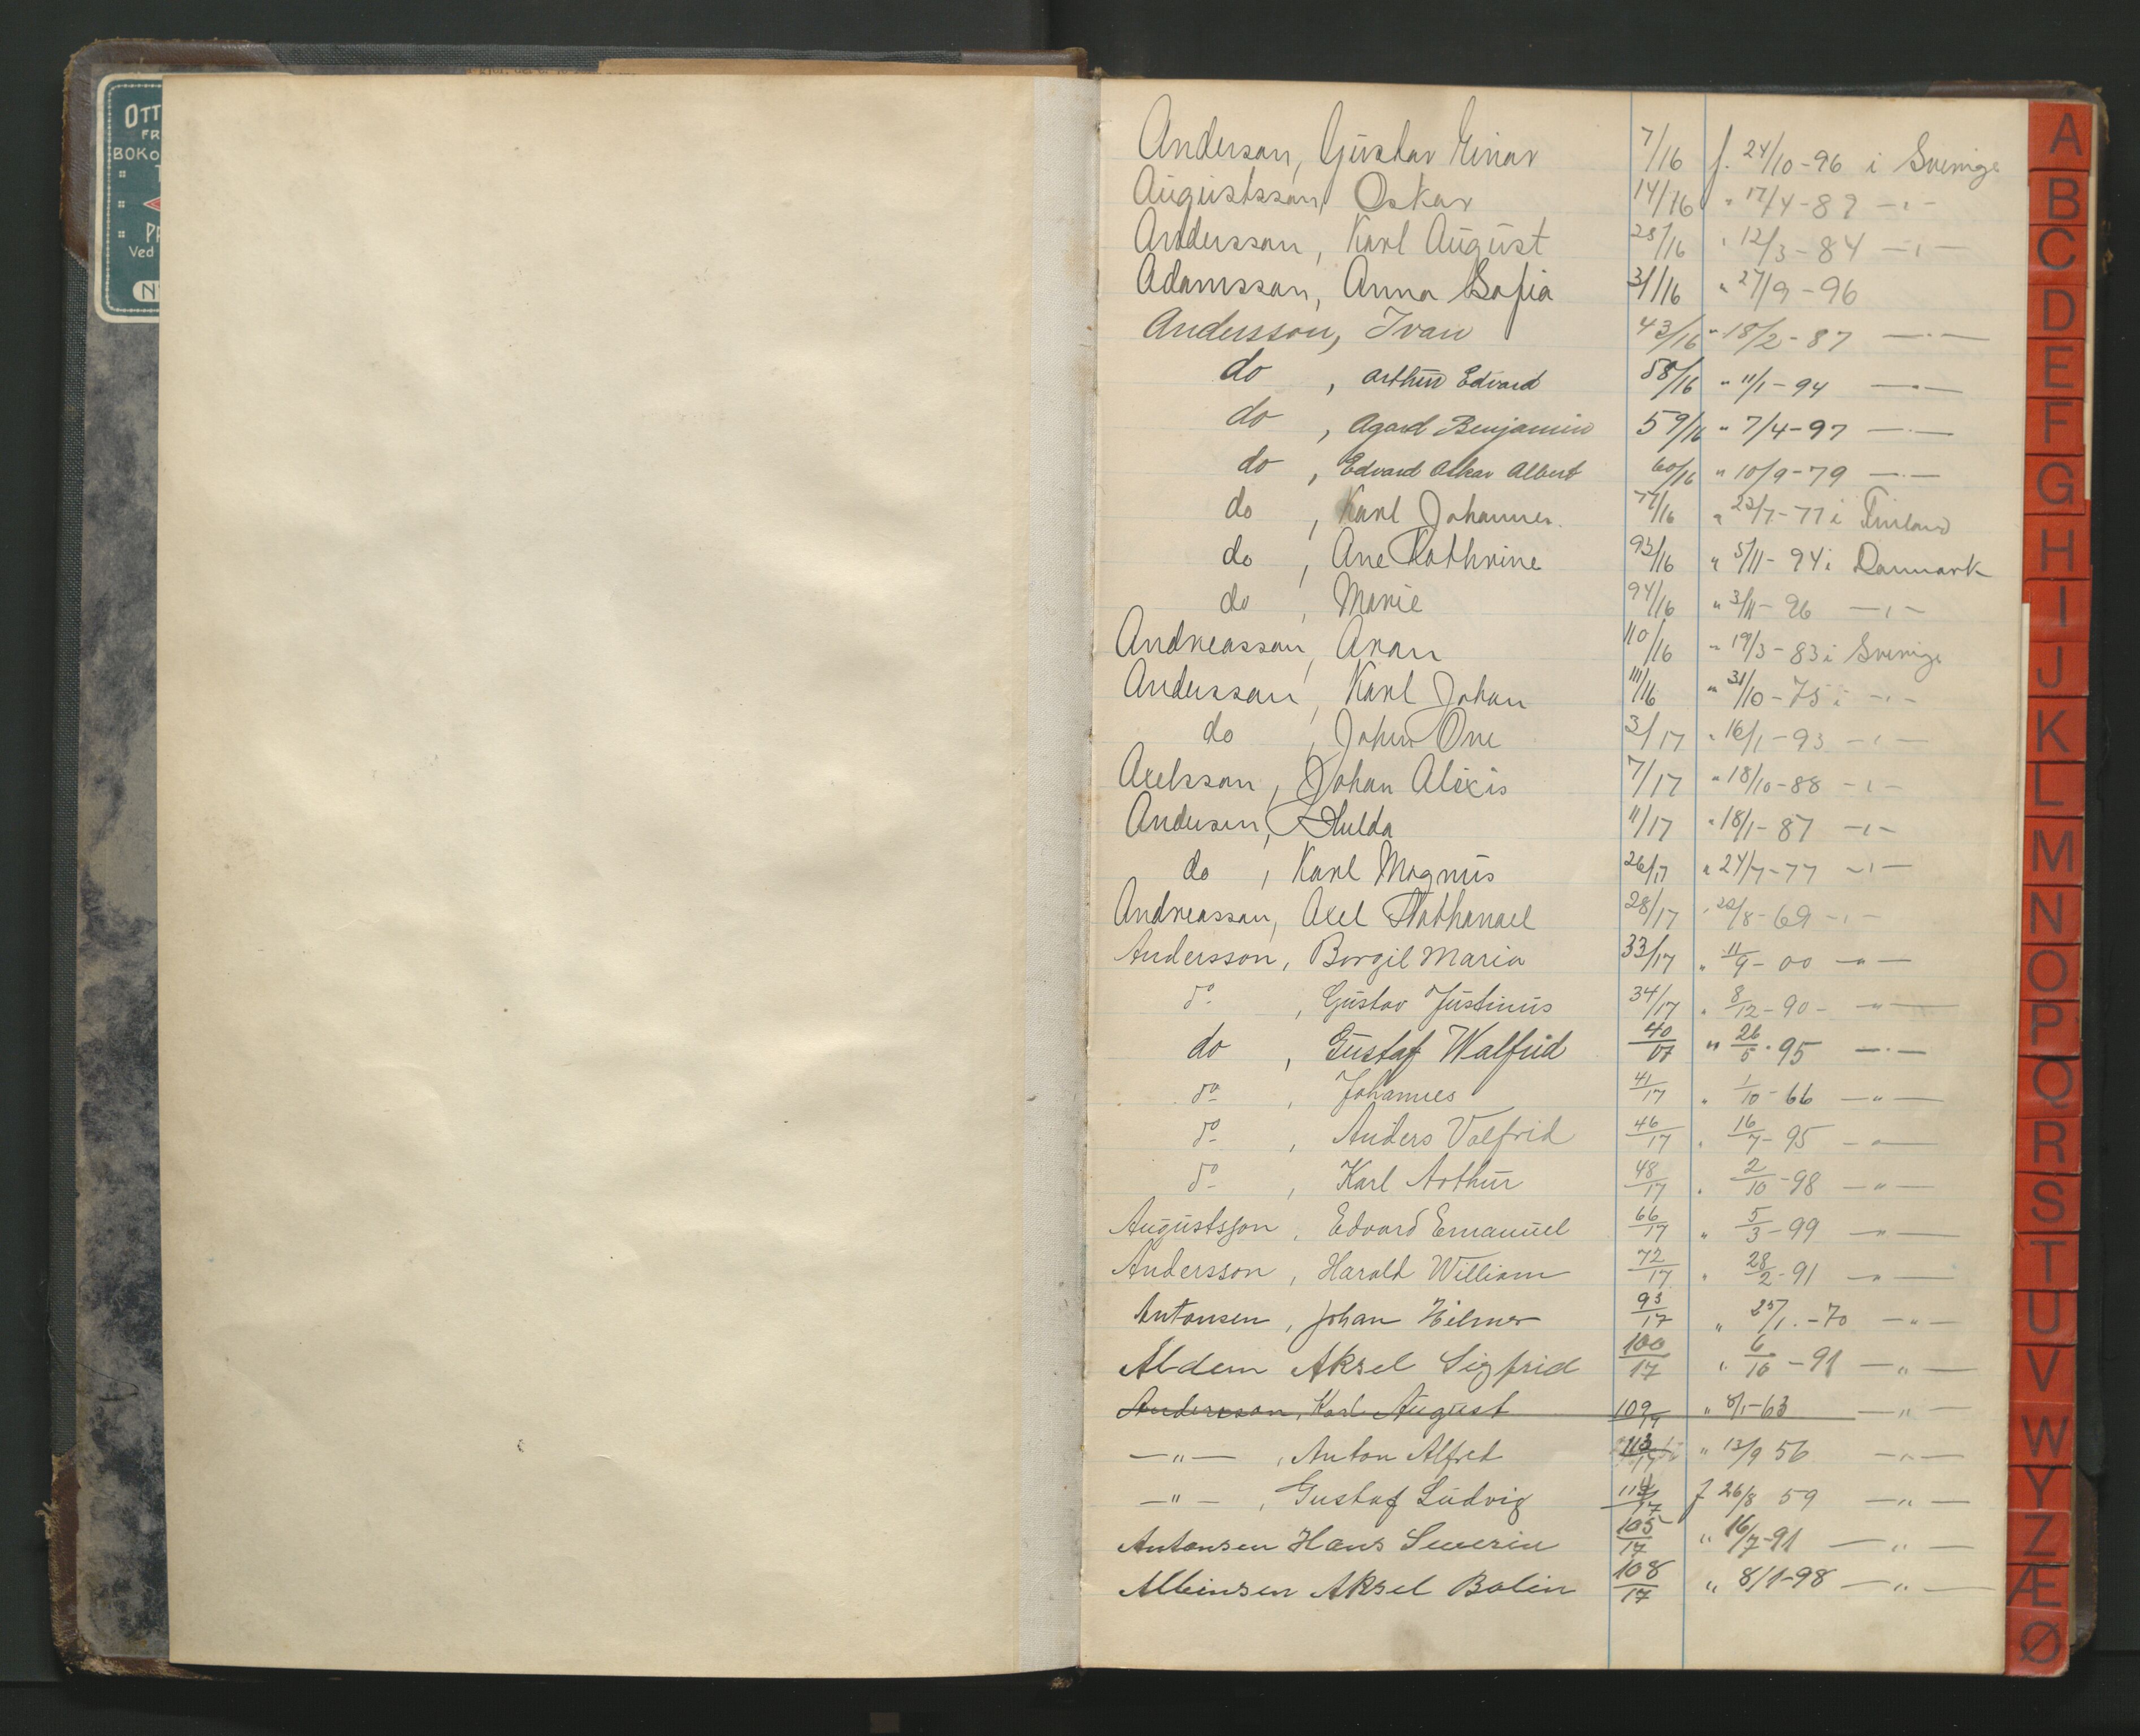 OTT
FR
BOKO
T
PR
Ved
N
Anderson, Gustav Einar 7/16 f. 24/10-96 i Sverige
Augustsson, Oskar 14/16 " 17/4-89 -"-
Andersson, Karl August 28/16 " 12/3-84 -"-
Adamsson, Anna Sofia 31/16 " 27/9-96
Andersson, Ivan 43/16 " 18/2-87 -"-
do , Arthur Edvard 58/16 " 11/1-94 -"-
do , Agard Benjamin 59/16 " 7/4-97 -"-
do , Edvard Oskar Albert 60/16 " 10/9-79 -"-
do , Karl Johannes 77/16 " 23/7-77 i Finland
do , Ane Kathrine 93/16 " 5/11-94 i Danmark
do , Marie 94/16 " 3/11-96 -"-
Andreasson, Aran 110/16 " 19/3-83 i Sverige
Andersson, Karl Johan 111/16 " 31/10-75 i -"-
do , Johan One 3/17 " 16/1-93 -"-
Axelsson, Johan Alexis 7/17 " 18/10-88 -"-
Andersen, Hulda 11/17 " 18/1-87 -"-
do , Karl Magnus 26/17 " 24/7-77 -"-
Andreassan, Axel Nathanael 28/17 " 22/8-69 -"-
Andersson, Borgil Maria 33/17 " 11/9-00 -"-
do , Gustav Justinus 34/17 " 8/12-90 -"-
do , Gustaf Walfrid 40/17 " 26/5-95 -"-
do , Johannes 41/17 " 1/10-66 -"-
do , Anders Valfrid 46/17 " 16/7-95 -"-
do , Karl Arthur 48/17 " 2/10-98 -"-
Augustsson, Edvard Emanuel 66/17 " 5/3-99 -"-
Andersson, Harald William 72/17 " 28/2-91 -"-
Antonsen, Johan Hilmer 93/17 " 25/1-70 -"-
Abdem Aksel Sigfrid 100/17 " 6/10-91 -"-
Andersson, Karl August 109/17 " 8/1-63 -"-
-"- , Anton Alfred 113/17 " 13/9 56 -"-
-"- , Gustaf Ludvig 114/17 f 26/8 59 -"-
Antonsen Hans Severin 105/17 " 16/7-91 -"-
Albinsen Aksel Bolin 108/17 " 8/1-98 -"-
A
B
C
D
E
F
G
H
I
J
K
L
M
N
O
P
Q
R
S
T
U
V
W
Y
Z
Æ
Ø